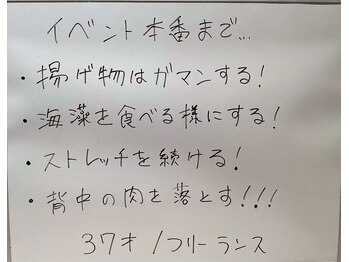 イベント本番まで...
・揚げ物はガマンする!
・海藻を食べる様にする!
・ストレッチを続ける!
・背中の肉を落とす!!!
37才/フリーランス